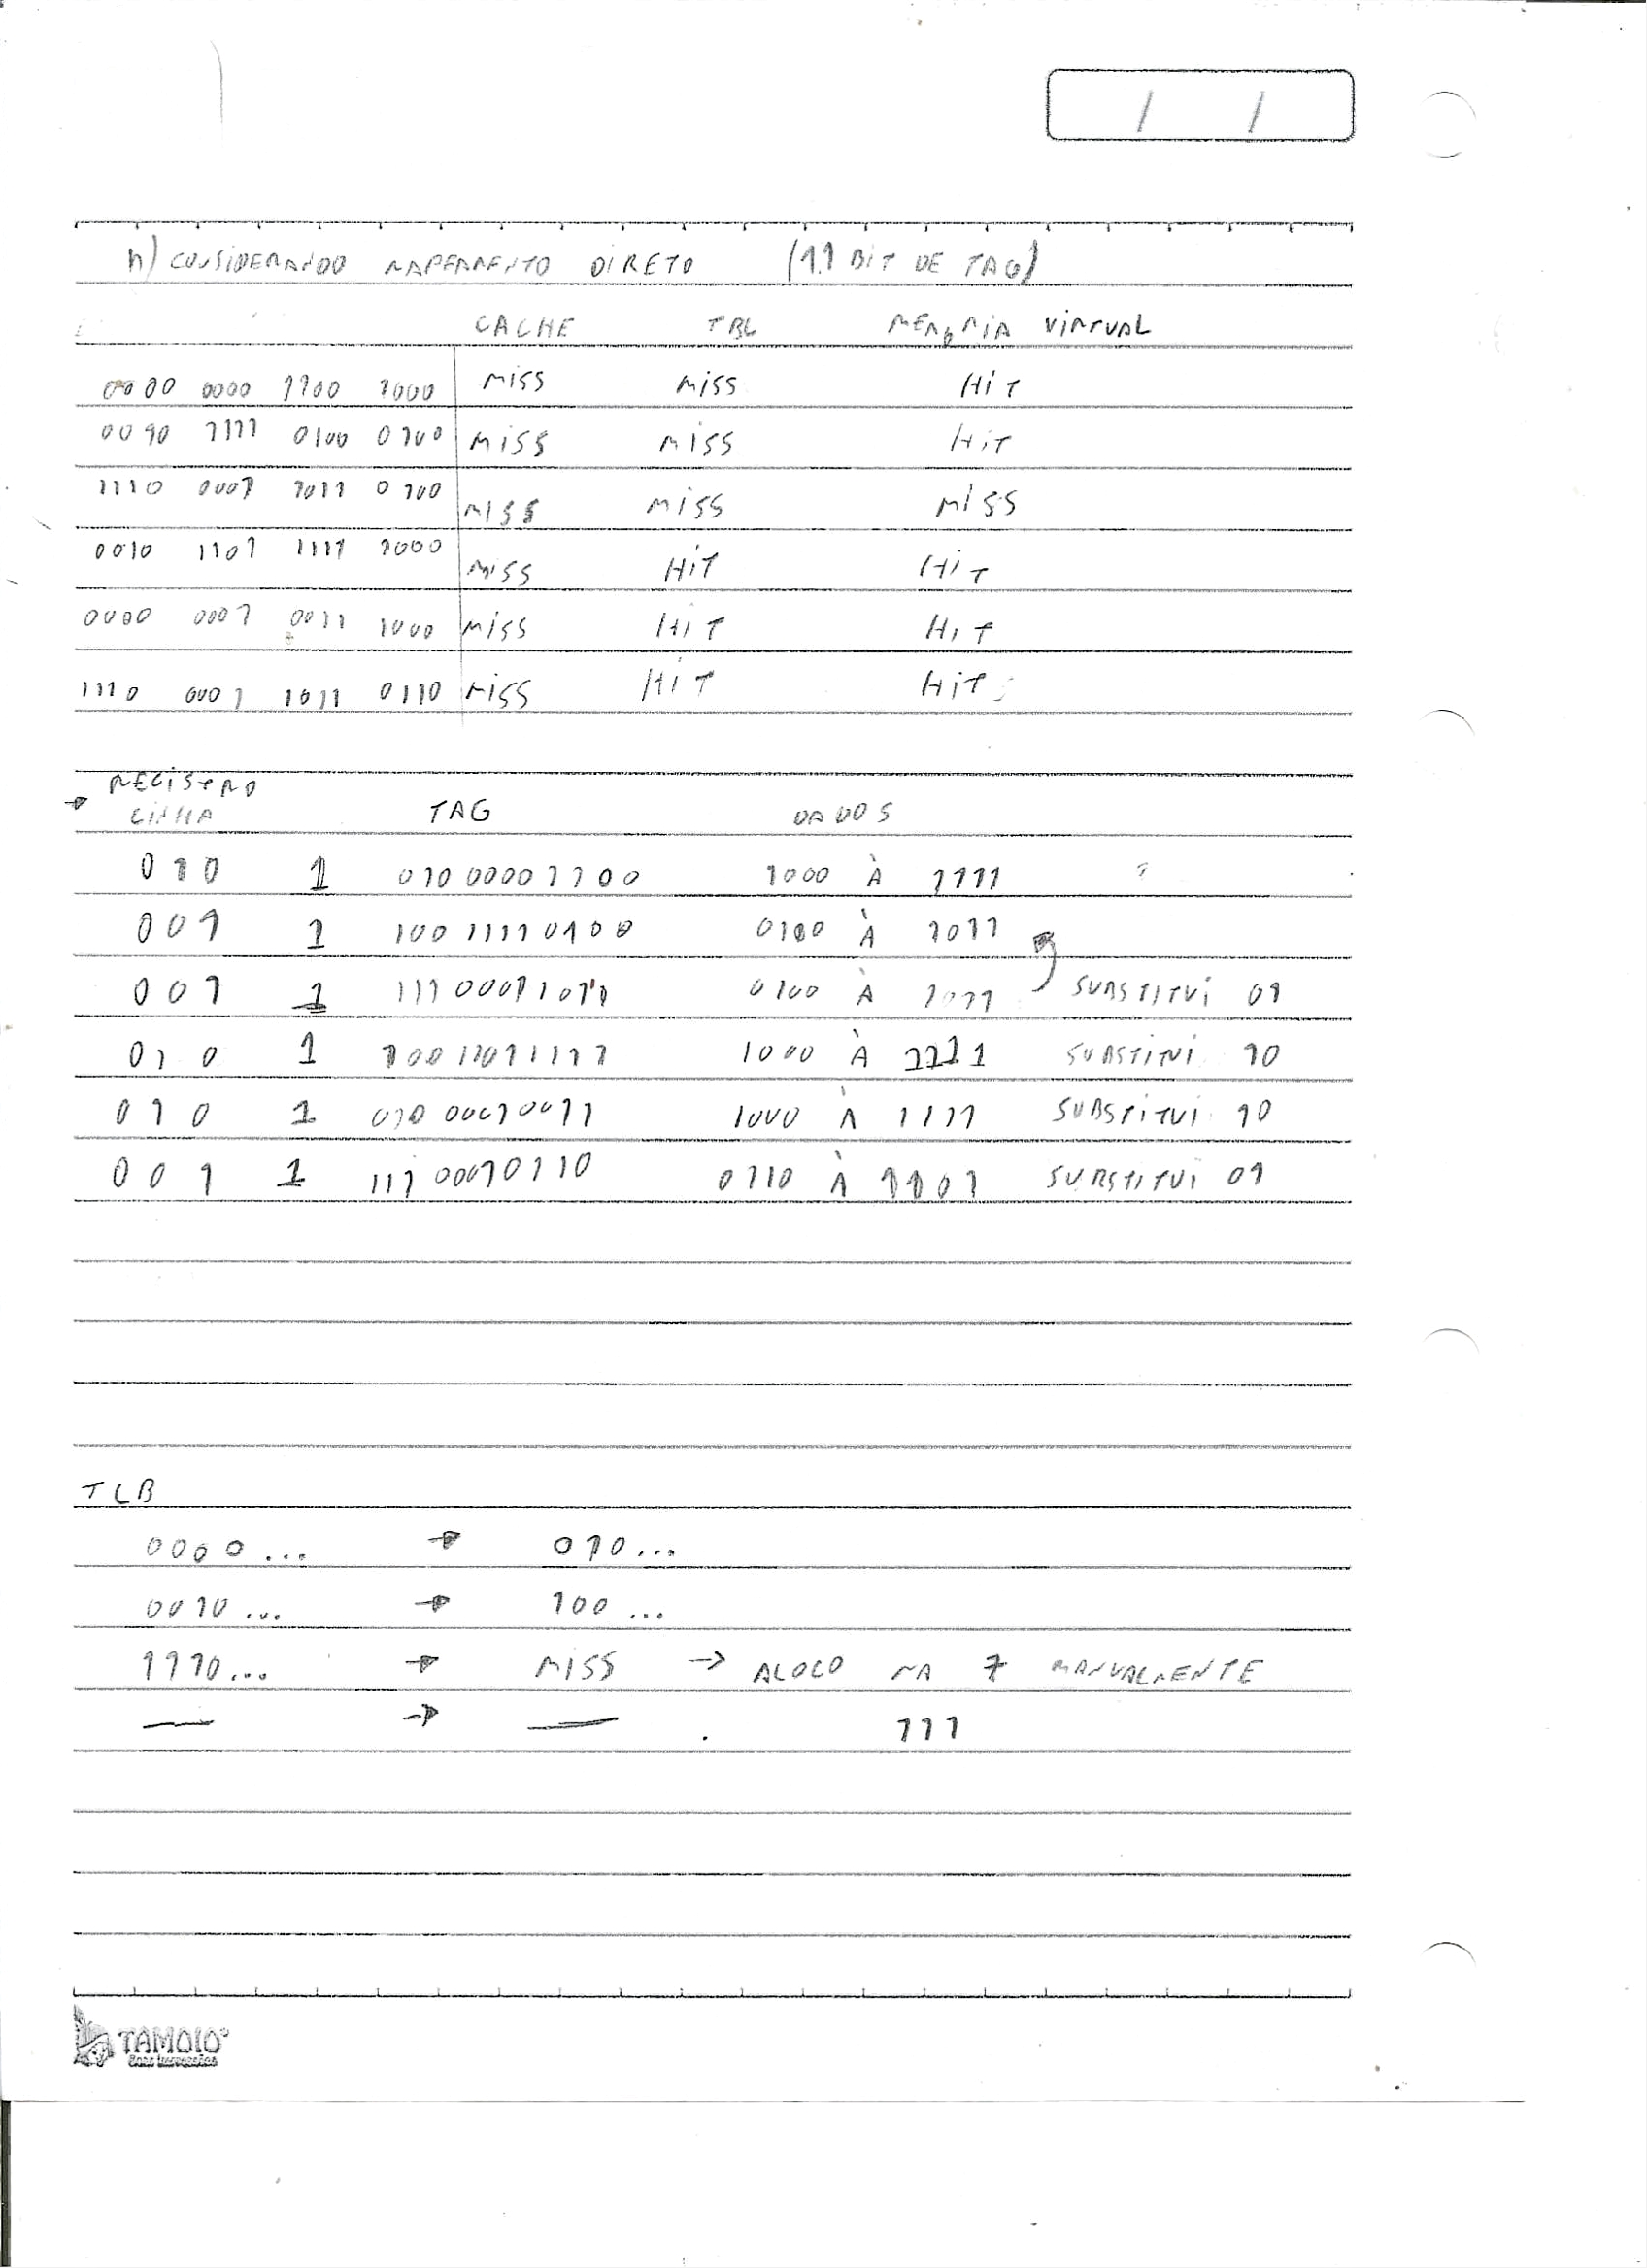 / /
h) CONSIDERANDO MAPEAMENTO DIRETO (11 BIT DE TAG)
CACHE TBL MEMORIA VIRTUAL
0000 0000 1100 1000 MISS MISS HIT
0010 1111 0100 0100 MISS MISS HIT
1110 0001 1011 0100 MISS MISS MISS
0010 1101 1111 1000 MISS HIT HIT
0000 0001 0011 1000 MISS HIT HIT
1110 0001 1011 0110 MISS HIT HIT
REGISTRO
→ LINHA TAG DADOS
010 1 01000001100 1000 À 1111
001 1 10011110100 0100 À 1011
001 1 11100011011 0100 À 1011 SUBSTITUI 01
010 1 10011011111 1000 À 1111 SUBSTITUI 10
010 1 01000010011 1000 À 1111 SUBSTITUI 10
001 1 11100010110 0110 À 1101 SUBSTITUI 01
TLB
0000... → 010...
0010... → 100...
1110... → MISS → ALOCO NA 7 MANUALMENTE
— → — . 111
TAMOIO